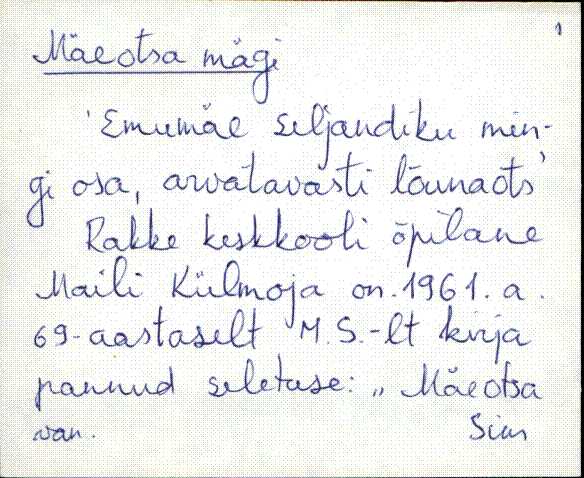 1
Mäeotsa mägi
'Emumäe seljandiku min-
gi osa, arvatavasti lõunaots'
Rakke keskkooli õpilane
Maili Külmoja on 1961. a.
69-aastaselt M. S.-lt kirja
pannud seletuse: „Mäeotsa
van. Sim